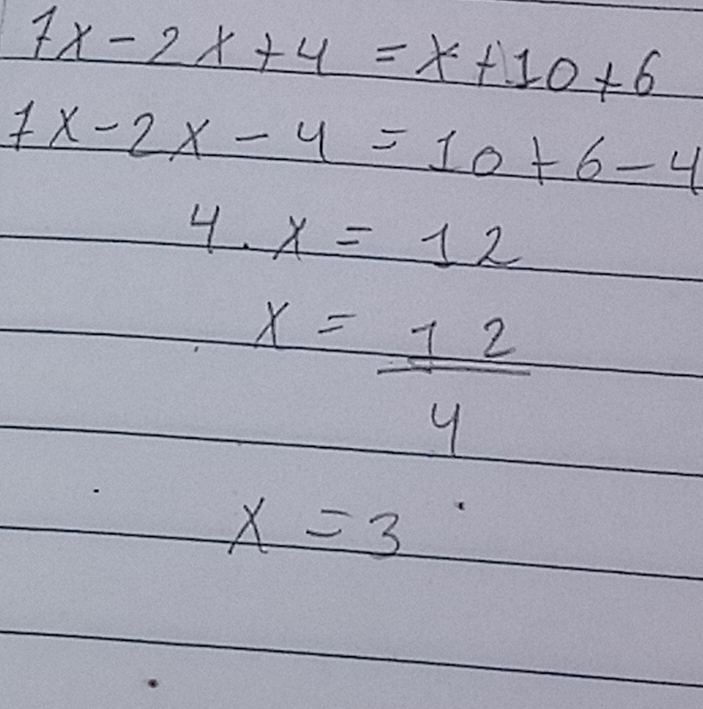 7x-2x+4 = x+10+6
7x-2x-4 = 10+6-4
4.x = 12
x = 12
4
x = 3